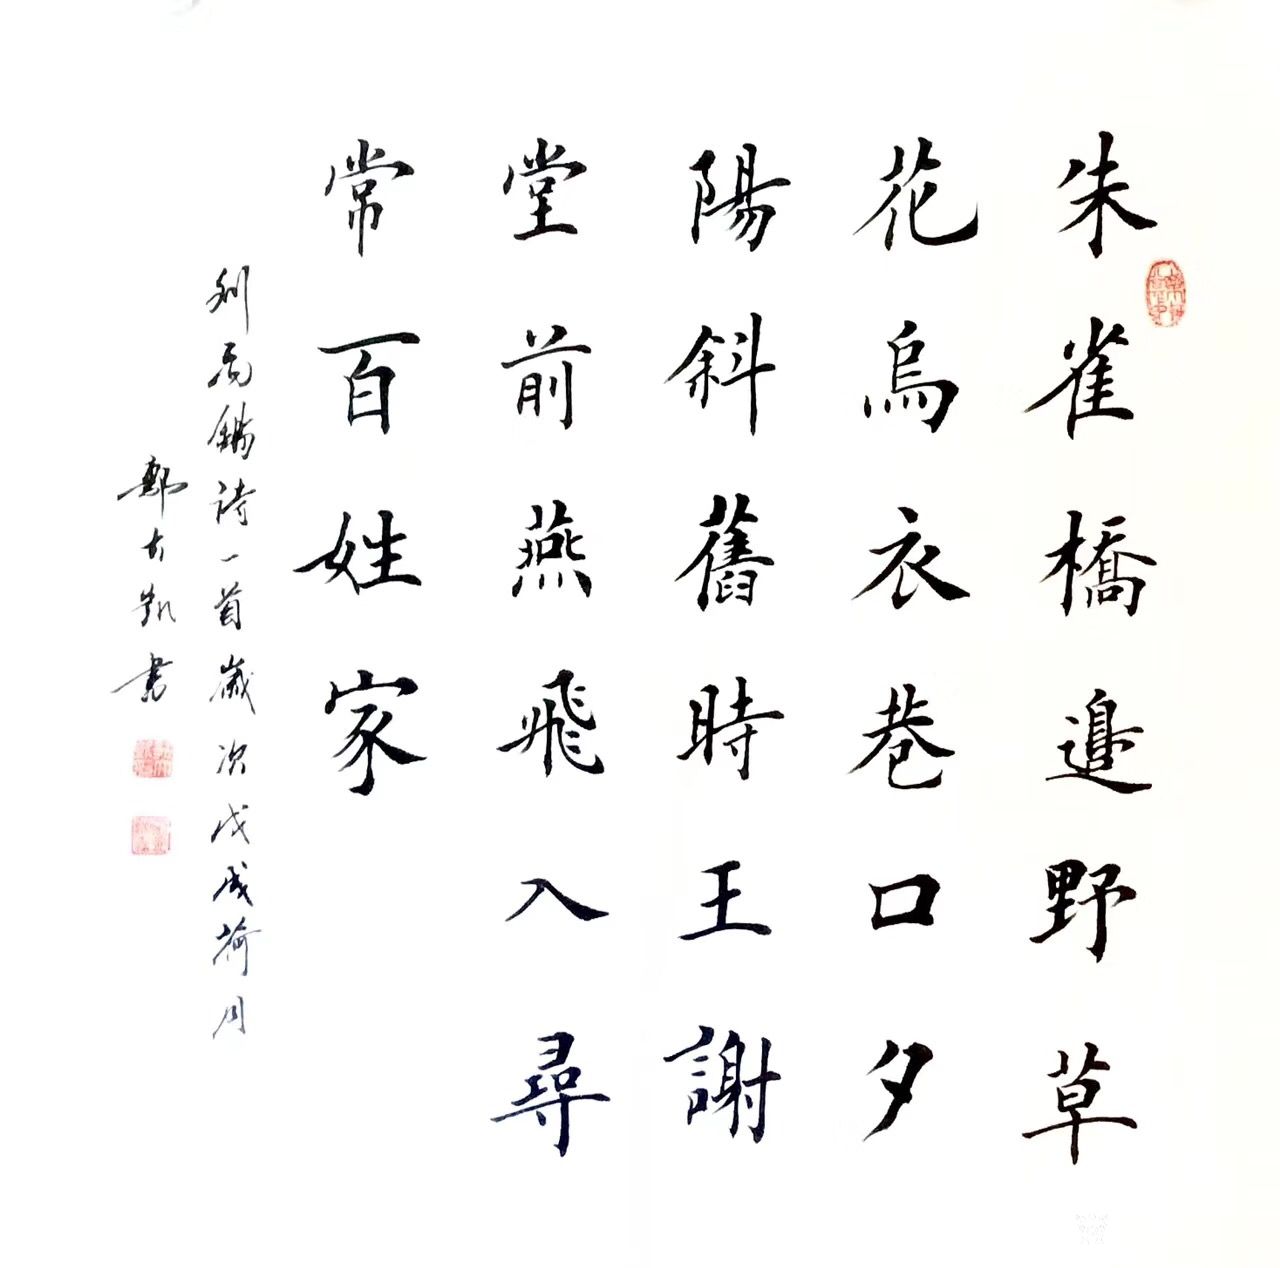 朱雀橋邉野草
花烏衣巷口夕
陽斜舊時王謝
堂前燕飛入尋
常百姓家
劉禹錫詩一首歲次戊戌荷月
鄭書